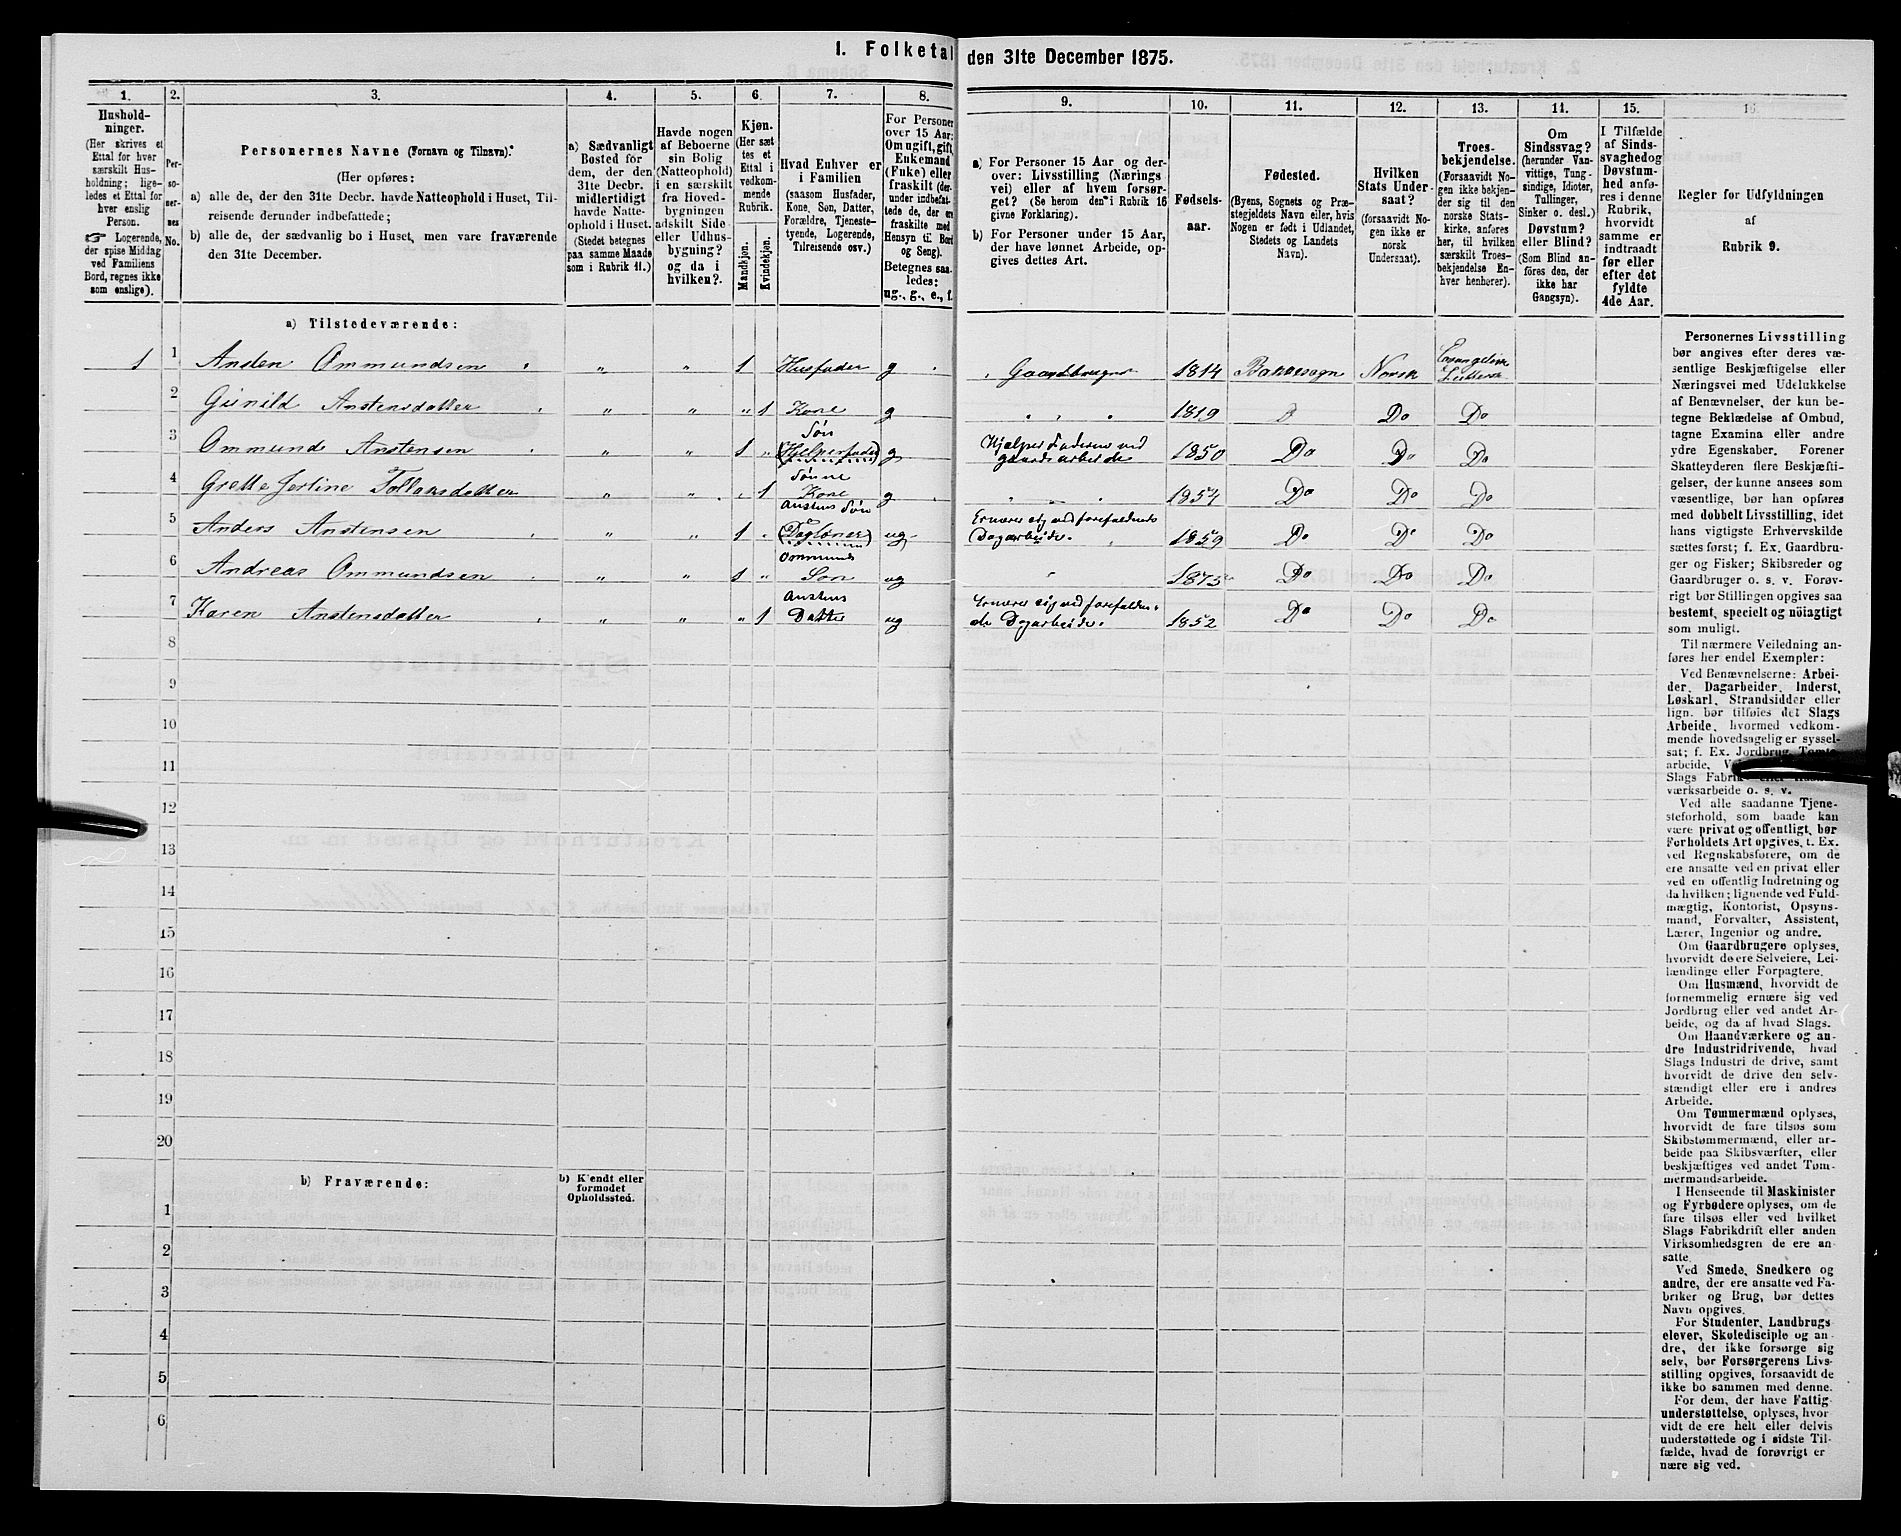 1. Folketal den 31te December 1875.
1. 2. 3. 4. 5. 6. 7. 8. 9. 10. 11. 12. 13. 14. 15. 16
Hushold-
ninger.
(Her skrives et
Ettal for hver
særskilt Hus-
holdning; lige-
ledes et Ettal for
hver enslig
Person.
☞ Logerende,
der spise Middag
ved Familiens
Bord, regnes ikke
som enslige).
Per-
so-
ner-
nes
No.
Personernes Navne (Fornavn og Tilnavn).
(Her opføres:
a) alle de, der den 31te Decbr. havde Natteophold i Huset, Til-
reisende derunder indbefattede;
b) alle de, der sædvanlig bo i Huset, men vare fraværende
den 31te December.
a) Sædvanligt
Bosted for
dem, der den
31te Decbr.
midlertidigt
havde Natte-
ophold i Huset.
(Stedet betegnes
paa samme Maade
som i Rubrik 11.)
Havde nogen
af Beboerne
sin Bolig
(Natteophold)
i en særskilt
fra Hoved-
bygningen
adskilt Side
eller Udhus-
bygning?
og da i
hvilken?
Kjøn.
(Her sæt
tes et
Ettal i
vedkom-
mende
Rubrik.
Mandkjøn.
Kvindekjøn.
Hvad Enhver er
i Familien
(saasom Husfader,
Kone, Søn, Datter,
Forældre, Tjeneste-
tyende, Logerende,
Tilreisende osv.)
For Personer
over 15 Aar:
Om ugift, gift,
Enkemand
(Fuke) eller
fraskilt (der-
under indbefat-
tede de, der ere
fraskilte med
Hensyn til Bord
og Seng).
Betegnes saa-
ledes:
ug., g., e., f.
a) For Personer 15 Aar og der-
over: Livsstilling (Nærings
vei) eller af hvem forsør-
get? (Se herom den i Rubrik 16
givne Forklaring).
b) For Personer under 15 Aar,
der have lønnet Arbeide, op-
gives dettes Art.
Fødsels-
aar.
Fødested.
(Byens, Sognets og Præ-
stegjeldets Navn eller, hvis
Nogen er født i Udlandet,
Stedets og Landets
Navn).
Hvilken
Stats Under-
saat?
(forsaavidt No-
gen ikke er
norsk
Undersaat).
Troes-
bekjendelse.
(Forsaavidt No
gen ikke bekjen-
der sig til den
norske Stats-
kirke, anføres
her, til hvilken
særskilt Troes-
bekjendelse En-
hver henhører).
Om
Sindssvag?
(herunder Van-
vittige, Tung-
sindige, Idioter,
Tullinger,
Sinker o. desl.)
Døvstum?
eller Blind?
(Som Blind an-
føres den, der
ikke har
Gangsyn).
I Tilfælde
af Sinds-
svaghed og
Døvstum-
hed anfø-
res i denne
Rubrik,
hvorvidt
samme er
indtraadt
før eller
efter det
fyldte
4de Aar.
Regler for Udfyldningen
af
Rubrik 9.
a) Tilstedeværende:
1 1 Ansten Ommundsen " " 1 Husfader g Gaardbruger 1814 Bakkesogn Norsk Evangelisk Luthersk
2 Gunild Anstensdatter " " " 1 Kone g " " " 1819 Do Do
3 Ommund Anstensen " " 1 " Søn (Hjelper fader) g Hjælper Faderen ved gaardsarbeide 1850 Do Do Do
4 Grethe Jertine Tollaksdatter " " " 1 Sønne Kone g " " " 1854 Do Do Do
5 Anders Anstensen " " 1 " Anstens Søn (Dagløner) ug Ernærer sig ved forefaldende Dagarbeide. 1859 Do Do Do
6 Andreas Ommundsen " " 1 " Ommunds Søn ug " 1875 Do Do Do
7 Karen Anstensdatter " " " 1 Anstens Datter ug Ernærer sig ved forefalden-de Dagarbeide. 1852 Do Do Do
8
9
10
11
12
13
14
15
16
17
18
19
20
b) Fraværende:
b) Kendt eller
formodet
Opholdssted.
1
2
3
4
5
6
Personernes Livsstilling
bør angives efter deres væ-
sentlige Beskjæftigelse eller
Næringsvei med Udelukkelse
af Benævnelser, der kun be-
tegne Beklædelse af Ombud,
tagne Examina eller andre
ydre Egenskaber. Forener
Skatteyderen flere Beskjæfti-
gelser, der kunne ansees som
væsentlige, bør han opføres
med dobbelt Livsstilling, idet
hans vigtigste Erhvervskilde
sættes først; f. Ex. Gaardbru-
ger og Fisker; Skibsreder og
Gaardbruger o. s. v. Forøv-
rigt bør Stillingen opgives saa
bestemt, specielt og nøiagtigt
som muligt.
Til nærmere Veiledning an-
føres her endel Exempler:
Ved Benævnelserne: Arbei-
der, Dagarbeider, Inderst,
Løskarl, Strandsidder eller
lign. bør tilføies det Slags
Arbeide, hvormed vedkom-
mende hovedsagelig er syssel-
sat; f. Ex. Jordbrug, Tømte-
arbeide,
Slags Fabrik- eller
værksarbeide o. s. v.
Ved alle saadanne Tjene-
steforhold, som baade kan
være privat og offentligt, bør
Forholdets Art opgives, t. Ex.
ved Regnskabsførere, om de
ere ansatte ved en privat eller
ved en offentlig Indretning og
da hvilken; lignende ved Fuld-
mægtig, Kontorist, Opsyns-
mand, Forvalter, Assistent,
Lærer, Ingeniør og andre.
Om Gaardbrugere oplyses,
hvorvidt de ere Selveiere, Lei-
lændinge eller Forpagtere.
Om Husmænd, hvorvidt de
fornemmelig ernære sig ved
Jordbrug eller ved andet Ar-
beide, og da af hvad Slags.
Om Haandværkere og an-
dre Industridrivende, hvad
Slags Industri de drive, samt
hvorvidt de drive den selv-
stændigt eller ere i andres
Arbeide.
Om Tømmermænd oplyses,
hvorvidt de fare tilsøs som
Skibstømmermænd, eller ar-
beide paa Skibsværfter, eller
beskjæftiges ved andet Tøm-
mermandsarbeide.
I Henseende til Maskinister
og Fyrbødere oplyses, om de
fare tilsøs eller ved hvilket
Slags Fabrikdrift eller anden
Virksomhedsgren de ere an-
satte.
Ved Smede, Snedkere og
andre, der ere ansatte ved Fa-
briker og Brug, bør dettes
Navn opgives.
For Studenter, Landbrugs-
elever, Skoledisciple og an-
dre, der ikke forsørge sig
selv, bør Forsørgerens Livs-
stilling opgives, forsaavidt de
ikke bo sammen med denne.
For dem, der have Fattig
understøttelse, oplyses, hvor
vidt de ere helt eller delvis
understøttede og i sidste Til-
fælde, hvad de forøvrigt er
nære sig ved.